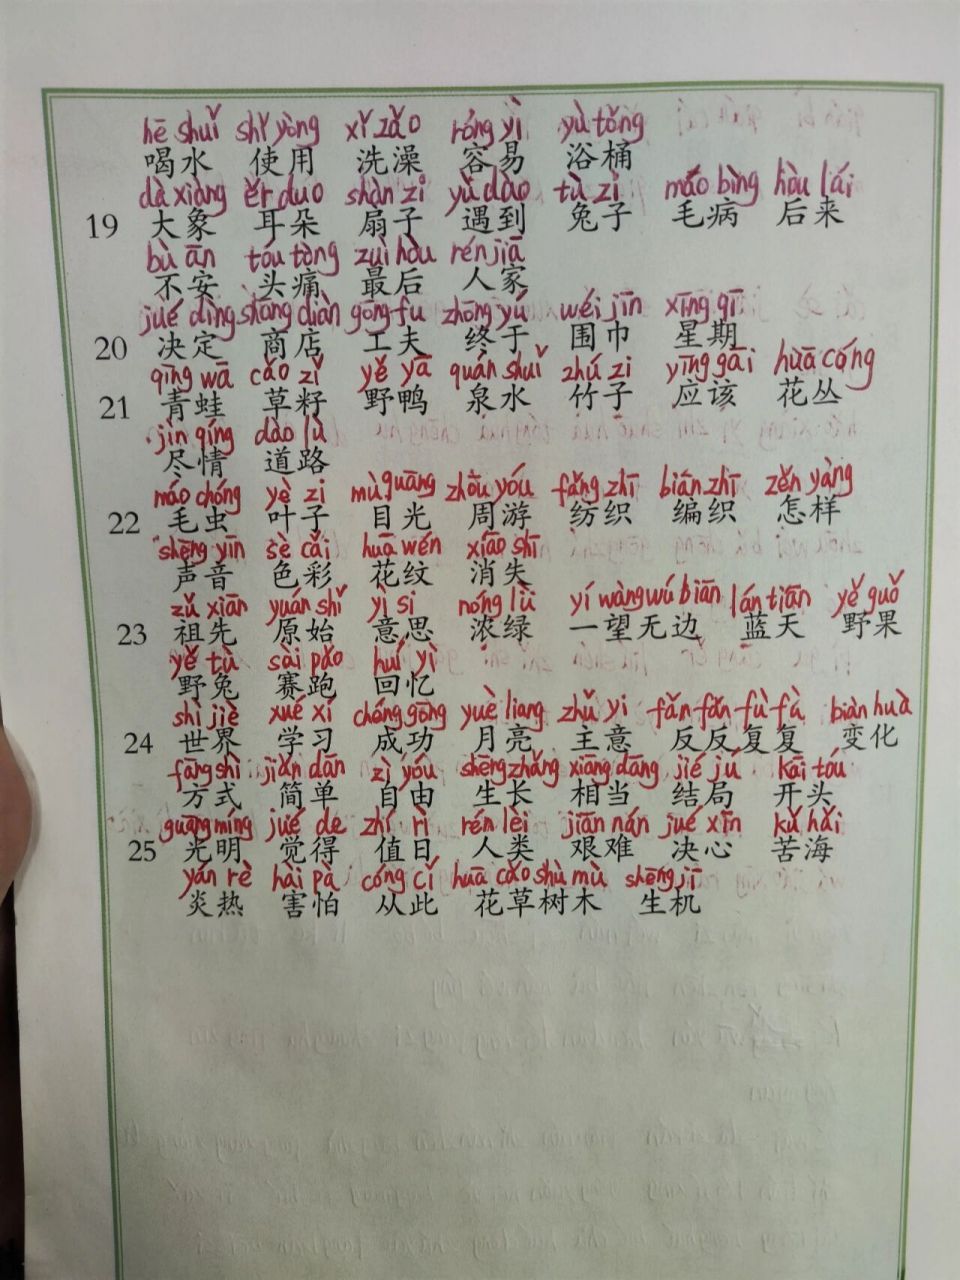 hē shuǐ shǐ yòng xǐ zǎo róng yì yù tǒng
喝水 使用 洗澡 容易 浴桶
dà xiàng ěr duo shàn zi yù dào tù zi máo bìng hòu lái
19 大象 耳朵 扇子 遇到 兔子 毛病 后来
bù ān tóu tòng zuì hòu rén jiā
不安 头痛 最后 人家
jué dìng shāng diàn gōng fu zhōng yú wéi jīn xīng qī
20 决定 商店 工夫 终于 围巾 星期
qīng wā cǎo zǐ yě yā quán shuǐ zhú zi yīng gāi huā cóng
21 青蛙 草籽 野鸭 泉水 竹子 应该 花丛
jìn qíng dào lù
尽情 道路
máo chóng yè zi mù guāng zhōu yóu fǎng zhī biān zhī zěn yàng
22 毛虫 叶子 目光 周游 纺织 编织 怎样
shēng yīn sè cǎi huā wén xiāo shī
声音 色彩 花纹 消失
zǔ xiān yuán shǐ yì si nóng lǜ yí wàng wú biān lán tiān yě guǒ
23 祖先 原始 意思 浓绿 一望无边 蓝天 野果
yě tù sài pǎo huí yì
野兔 赛跑 回忆
shì jiè xué xí chéng gōng yuè liang zhǔ yi fǎn fǎn fù fù biàn huà
24 世界 学习 成功 月亮 主意 反反复复 变化
fāng shì jiǎn dān zì yóu shēng zhǎng xiāng dāng jié jú kāi tóu
方式 简单 自由 生长 相当 结局 开头
guāng míng jué de zhí rì rén lèi jiān nán jué xīn kǔ hǎi
25 光明 觉得 值日 人类 艰难 决心 苦海
yán rè hài pà cóng cǐ huā cǎo shù mù shēng jī
炎热 害怕 从此 花草树木 生机